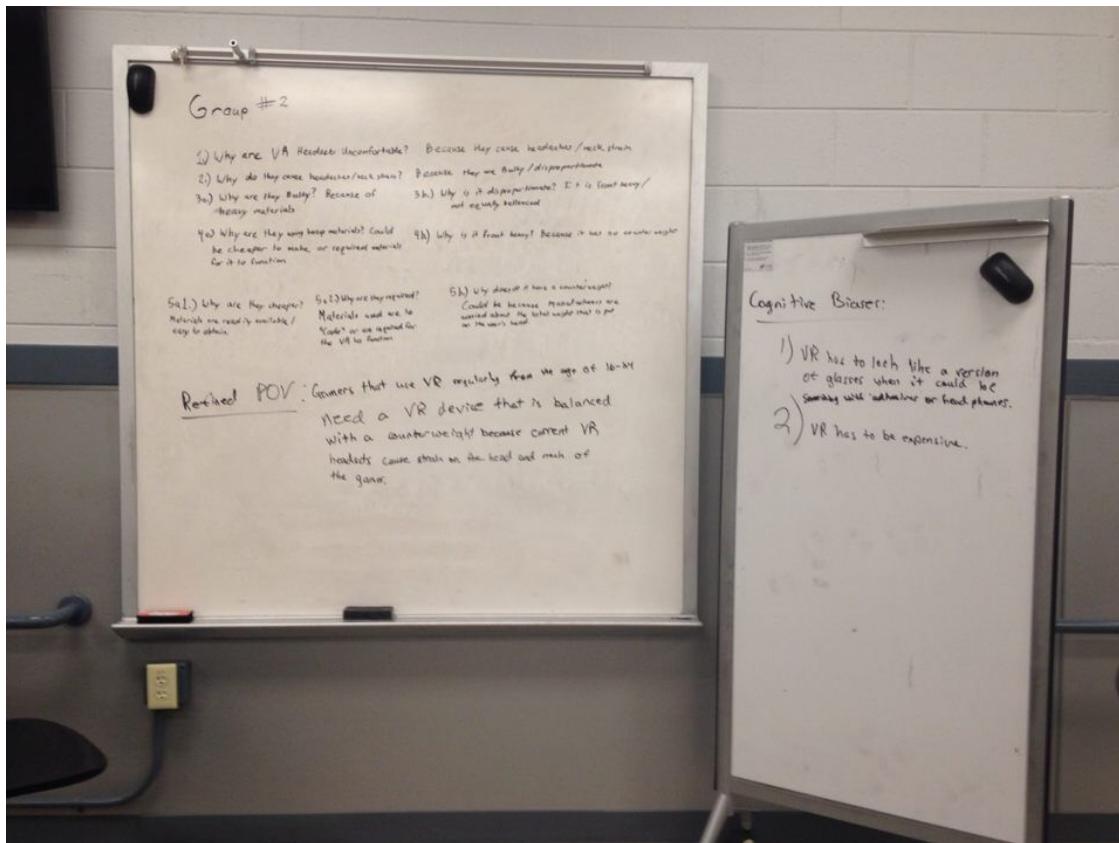 Group #2
1.) Why are VR Headsets Uncomfortable? Because they cause headaches/neck strain
2.) Why do they cause headaches/neck strain? Because they are Bulky/disproportionate
3a.) Why are they Bulky? Because of
heavy materials
3b.) Why is it disproportionate? It is front heavy/
not equally ballanced
4a) Why are they using materials? Could
be cheaper to make, or required materials
for it to function
4b) Why is it front heavy? Because it has no counter weight
5a1.) Why are they cheaper?
Materials are readily available/
easy to obtain.
5a2.) Why are they required?
Materials used are to
"code" or are required for
the VR to function
5b.) Why doesn't it have a counterweight?
Could be because Manufacturers are
worried about the total weight that is put
on the user's head.
Refined POV: Gamers that use VR regularly from the age of 16-24
need a VR device that is balanced
with a counterweight because current VR
headsets cause strain on the head and neck of
the gamer.
Cognitive Biases:
1) VR has to look like a version
of glasses when it could be
something with or headphones.
2) VR has to be expensive.